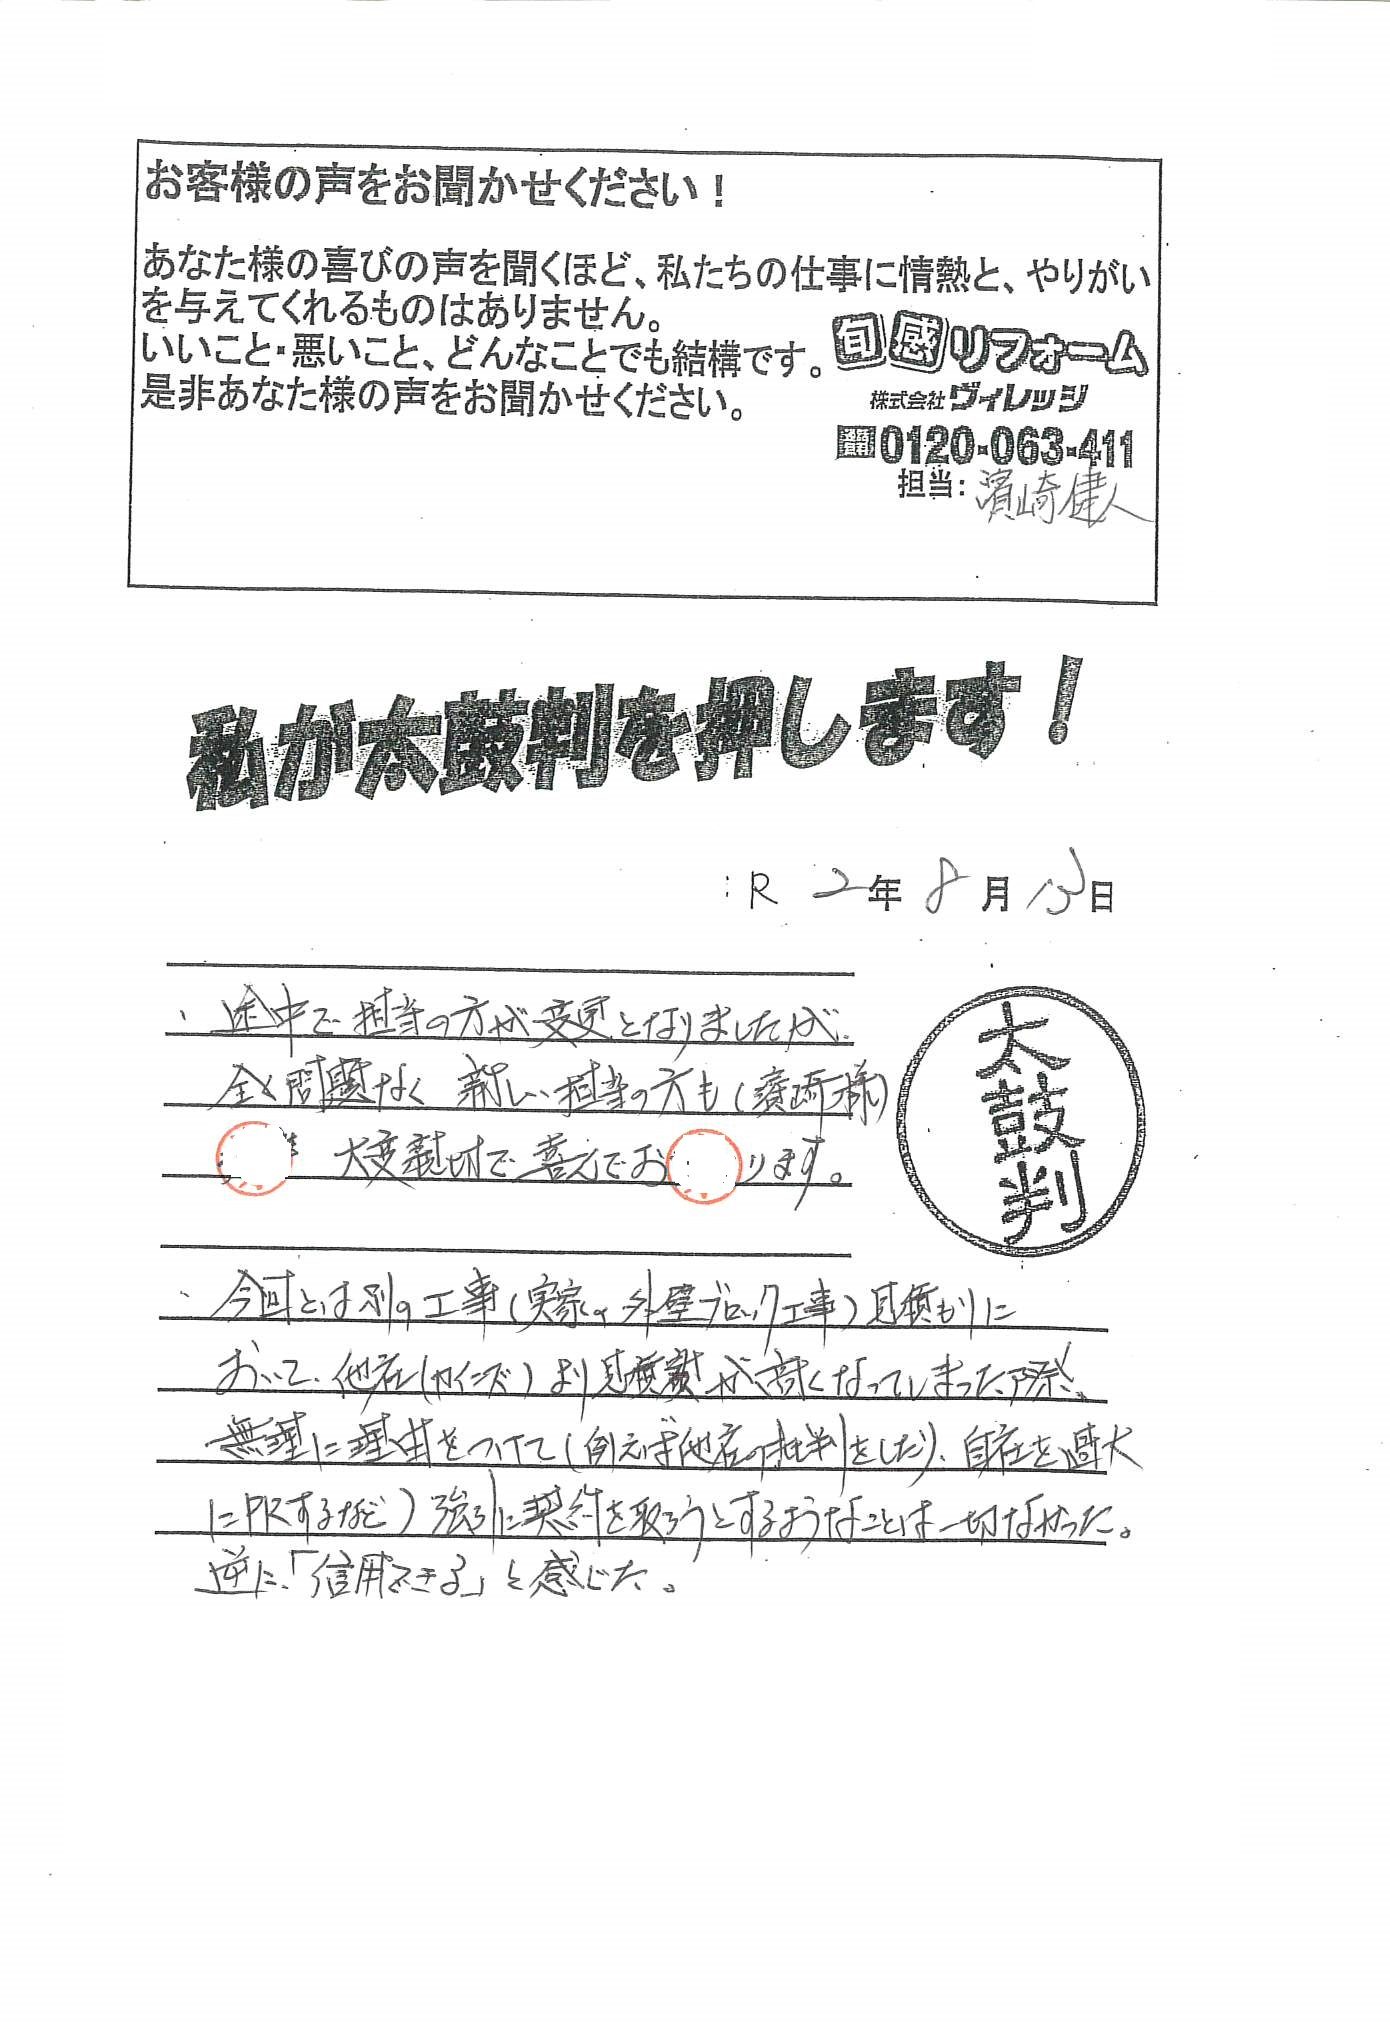 お客様の声をお聞かせください！
あなた様の喜びの声を聞くほど、私たちの仕事に情熱と、やりがい
を与えてくれるものはありません。
いいこと・悪いこと、どんなことでも結構です。
是非あなた様の声をお聞かせください。
旬感リフォーム
株式会社ヴィレッジ
0120-063-411
担当：濱崎健人
私が太鼓判を押します！
：R 2年 8月 13日
・途中で担当の方が変更となりましたが、
全く問題なく 新しい担当の方も（濱崎様）
大変親切で 喜んでお ります。
太鼓判
・今回とは別の工事（実家の外壁ブロック工事）見積もりに
おいて、他店（カインズ）より見積額が高くなってしまった際、
無理に理由をつけて（例えば他店の批判をしたり、自社を過大
にPRするなど）強引に契約を取ろうとするようなことは一切なかった。
逆に、「信用できる」と感じた。